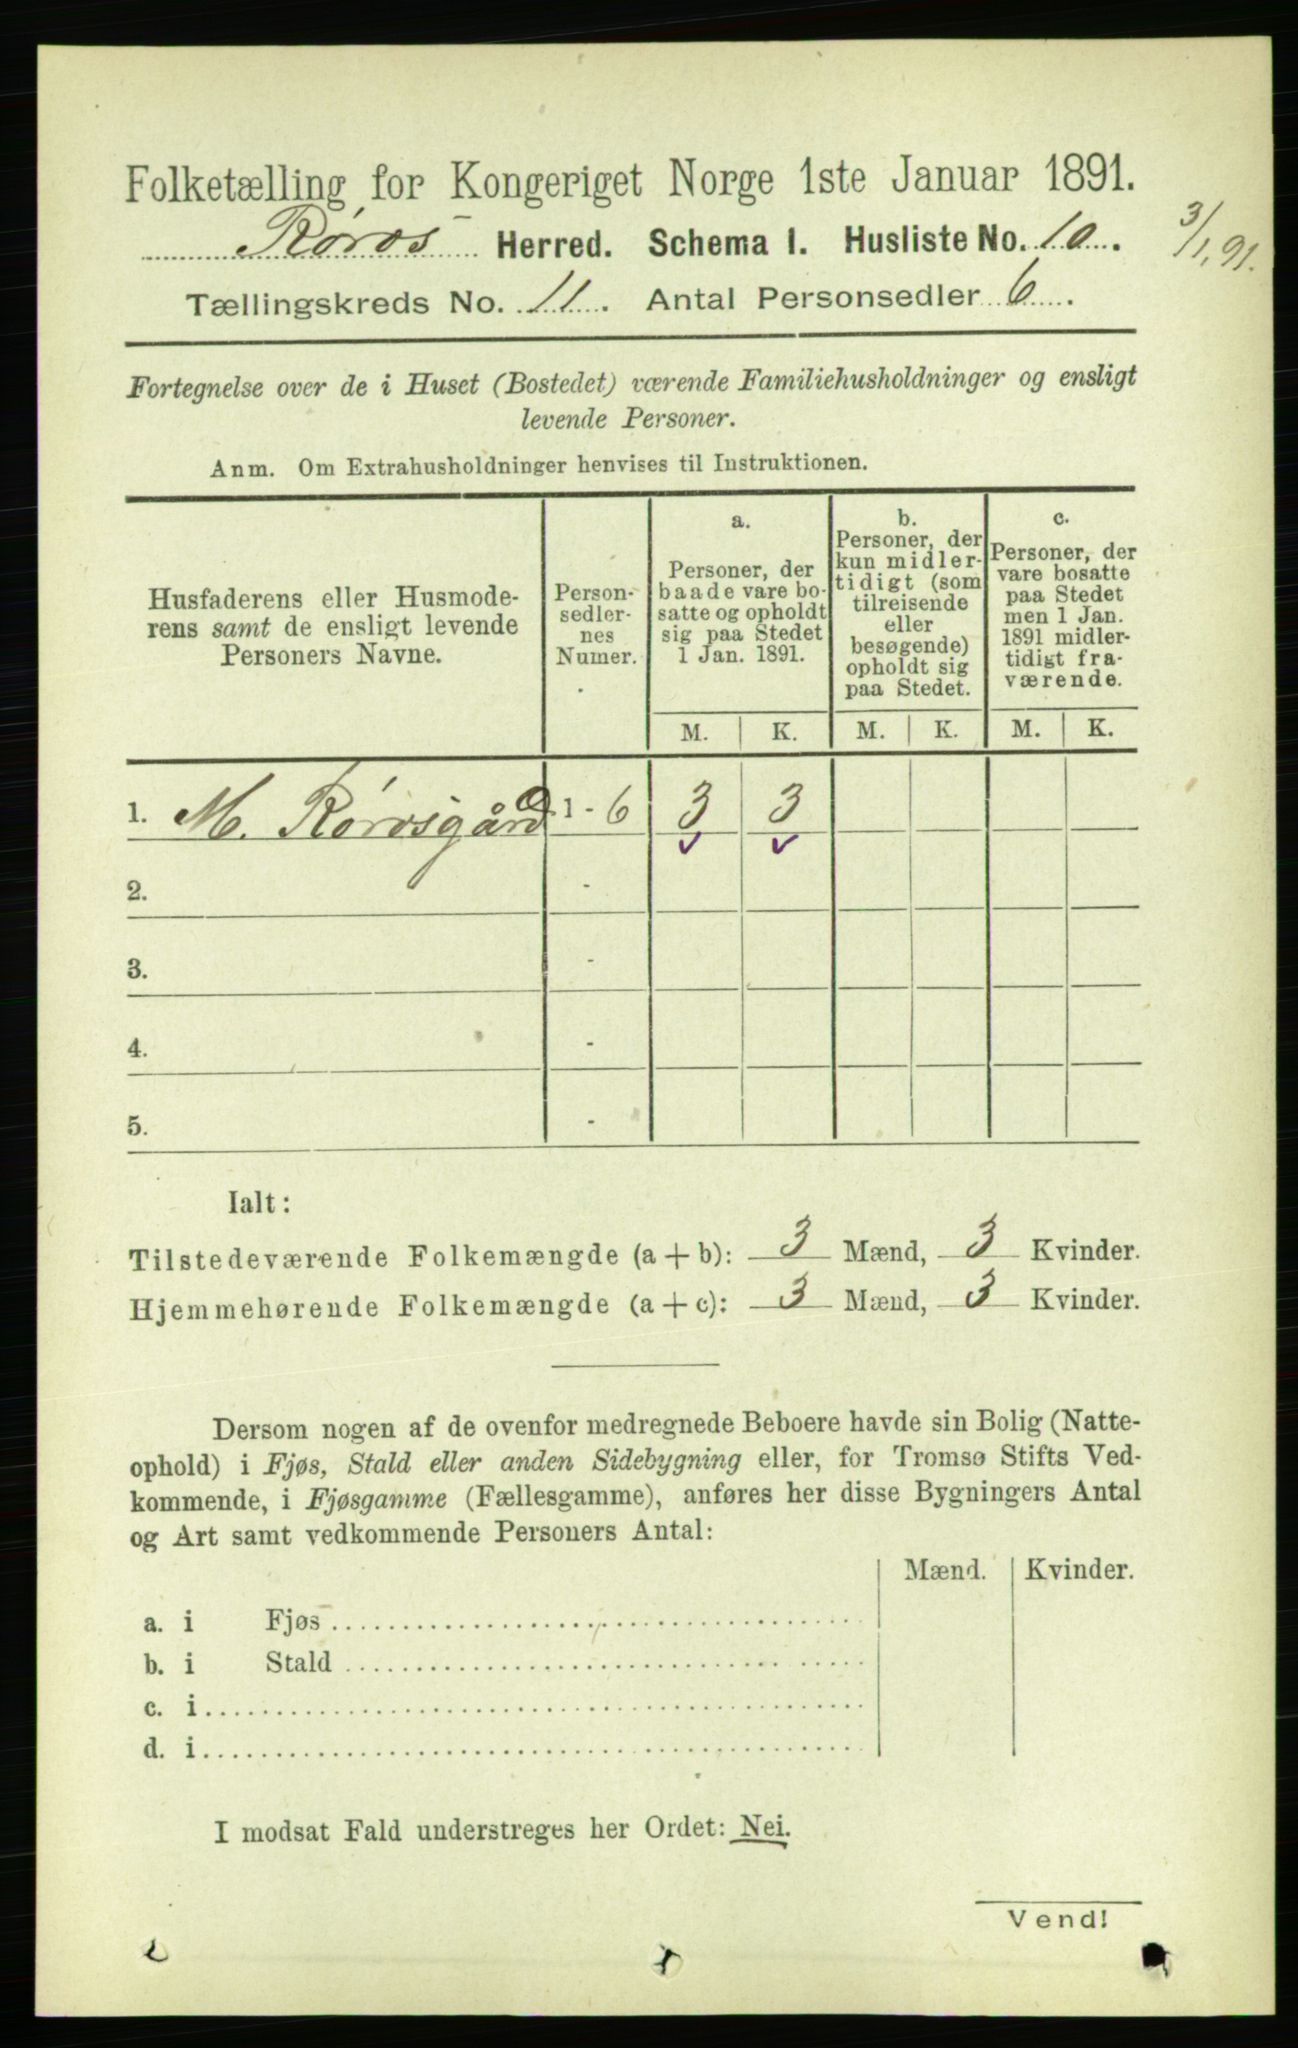 Folketælling for Kongeriget Norge 1ste Januar 1891.
Røros Herred. Schema 1. Husliste No. 10.
3/1, 91.
Tællingskreds No. 11. Antal Personsedler 6.
Fortegnelse over de i Huset (Bostedet) værende Familiehusholdninger og ensligt
levende Personer.
Anm. Om Extrahusholdninger henvises til Instruktionen.
Husfaderens eller Husmode-
rens samt de ensligt levende
Personers Navne.
Person-
sedler-
nes
Numer.
a.
Personer, der
baade vare bo-
satte og opholdt
sig paa Stedet
1 Jan. 1891.
b.
Personer, der
kun midler-
tidigt (som
tilreisende
eller
besøgende)
opholdt sig
paa Stedet.
c.
Personer, der
vare bosatte
paa Stedet
men 1 Jan.
1891 midler-
tidigt fra-
værende.
M. K. M. K. M. K.
1. M. Rørosgård 1 - 6 3 3
2. -
3. -
4. -
5. -
Ialt:
Tilstedeværende Folkemængde (a + b): 3 Mænd, 3 Kvinder.
Hjemmehørende Folkemængde (a + c): 3 Mænd, 3 Kvinder.
Dersom nogen af de ovenfor medregnede Beboere havde sin Bolig (Natte-
ophold) i Fjøs, Stald eller anden Sidebygning eller, for Tromsø Stifts Ved-
kommende, i Fjøsgamme (Fællesgamme), anføres her disse Bygningers Antal
og Art samt vedkommende Personers Antal:
Mænd. Kvinder.
a. i Fjøs
b. i Stald
c. i
d. i
I modsat Fald understreges her Ordet: Nei.
Vend!